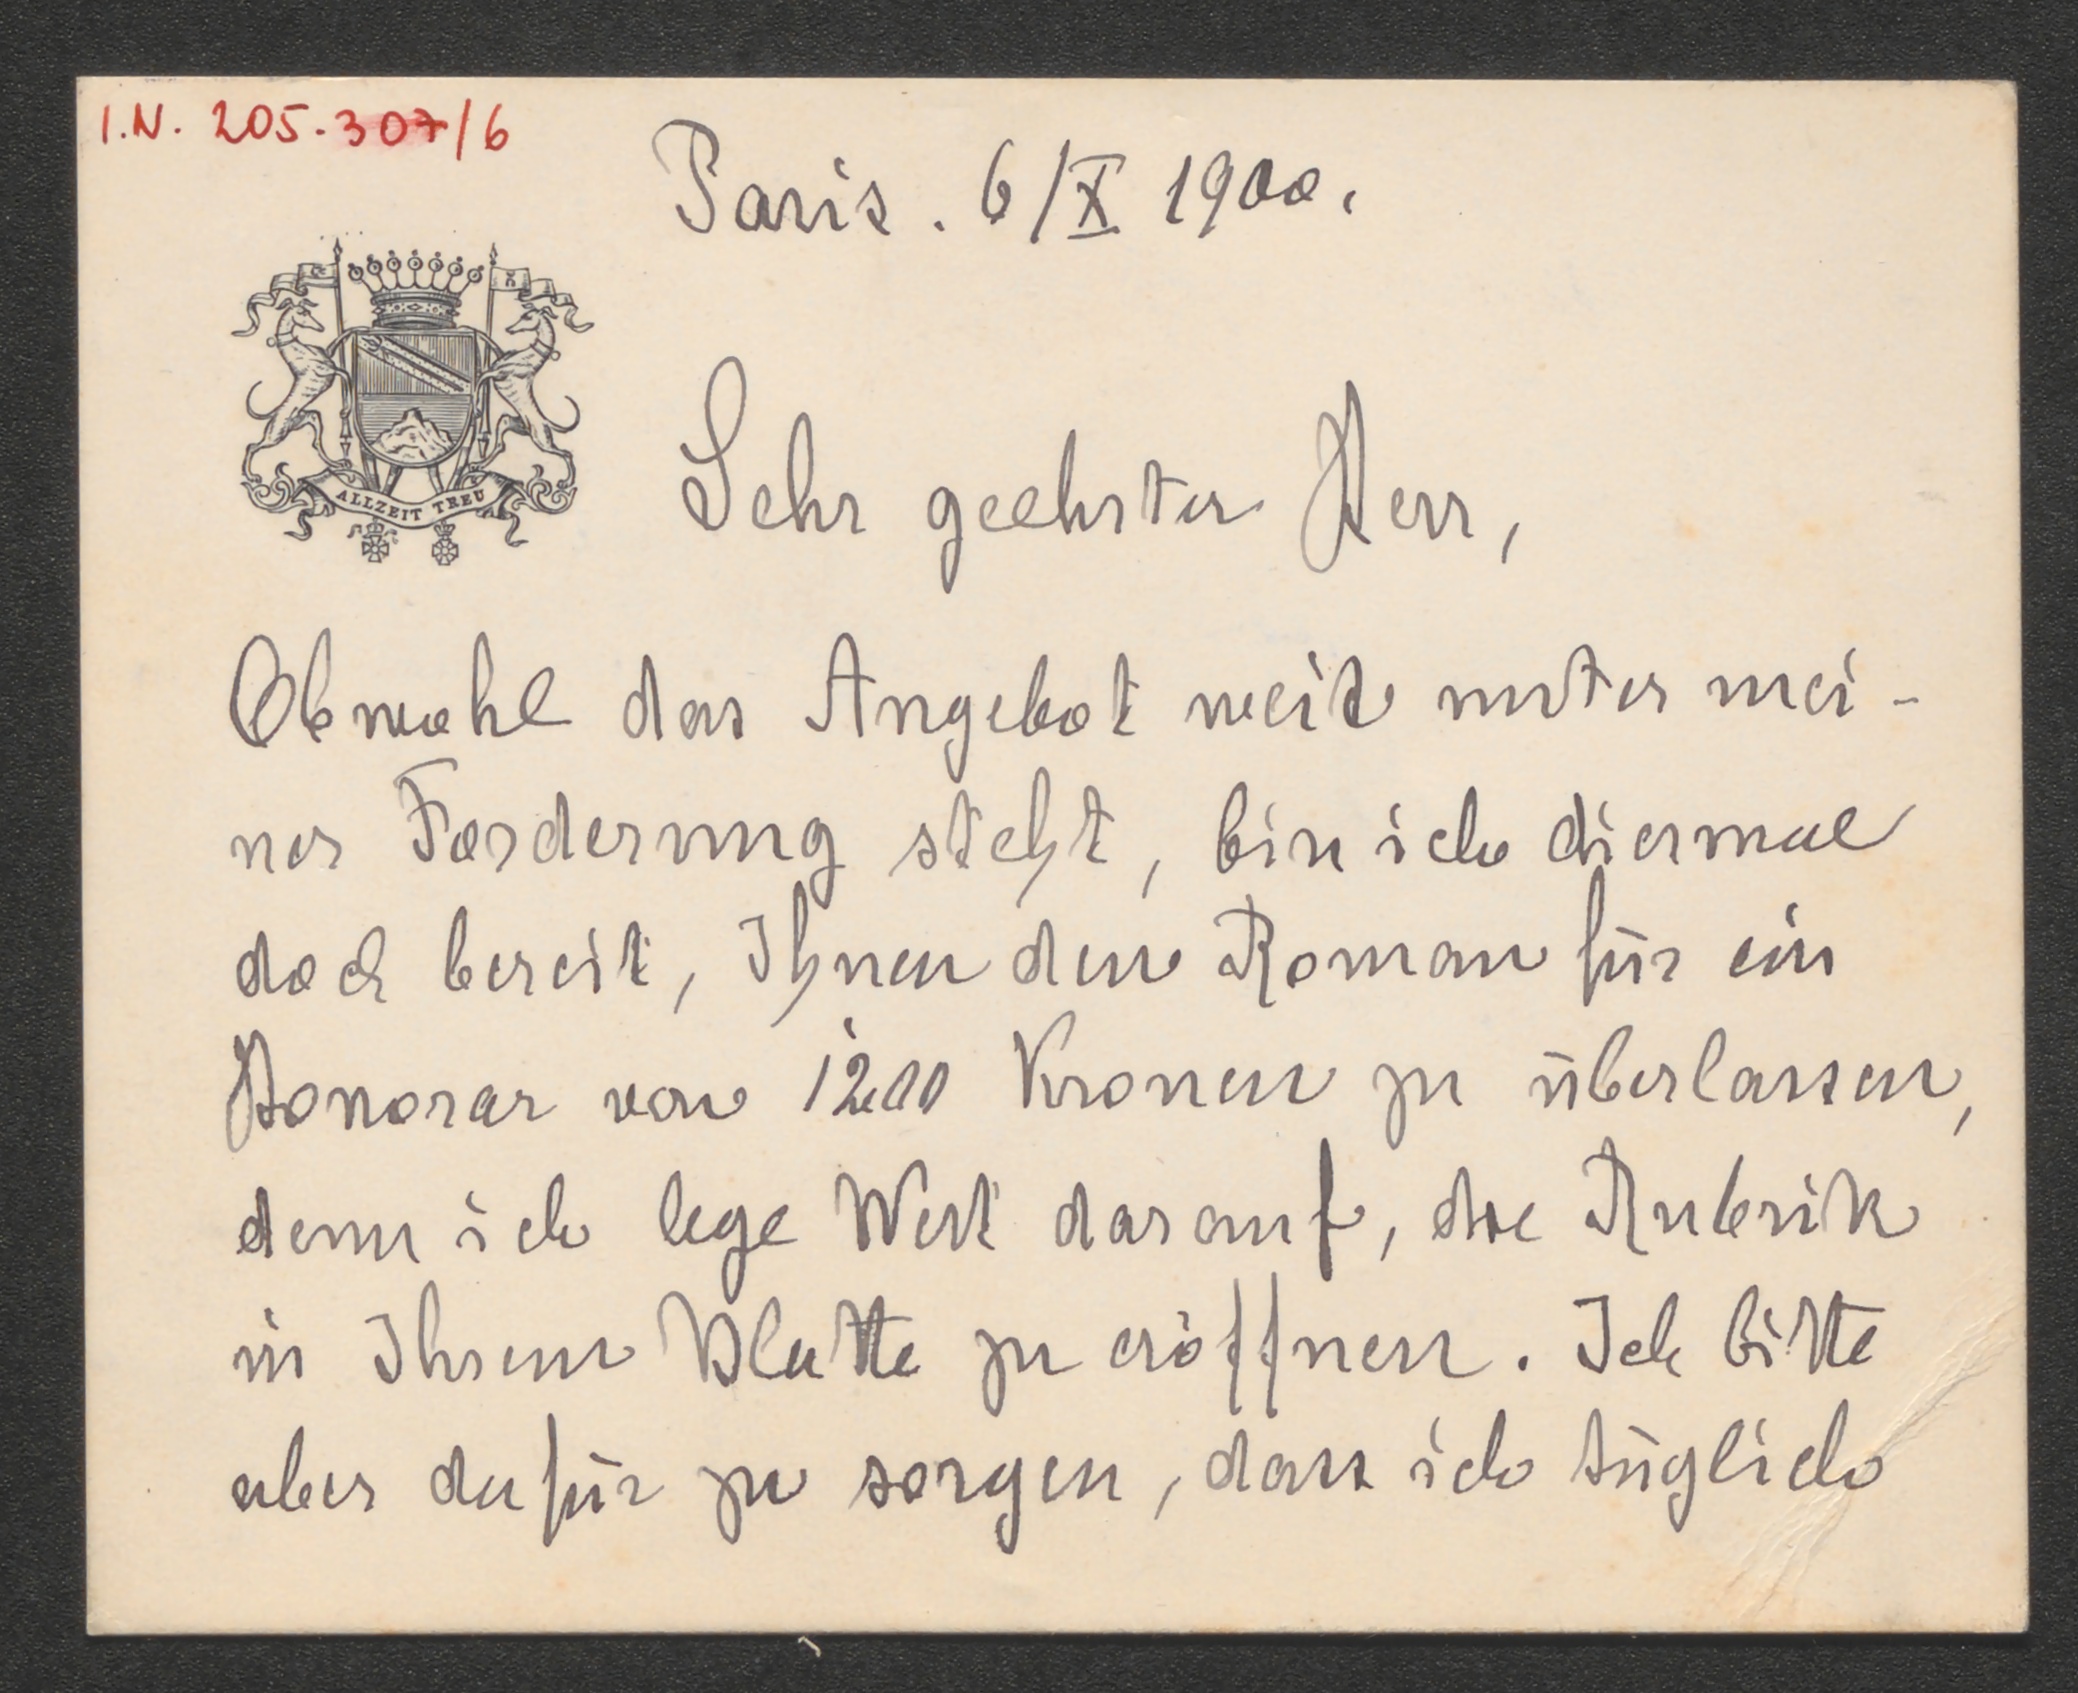 I.N. 205.307/6
Paris. 6/X 1900.
ALLZEIT TREU
Sehr geehrter Herr,
Obwohl das Angebot weit unter mei-
ner Forderung steht, bin ich diesmal
doch bereit, Ihnen den Roman für ein
Honorar von 1200 Kronen zu überlassen,
denn ich lege Wert darauf, die Rubrik
in Ihrem Blatte zu eröffnen. Ich bitte
aber dafür zu sorgen, dass ich täglich